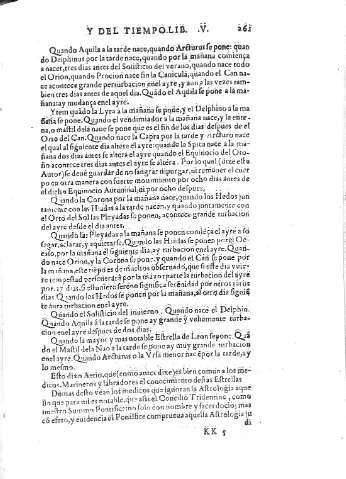 Y DEL TIEMPO. LIB. V. 261
Quando Aquila a la tarde nace, quando Arcturus se pone: quan
do Delphinus por la tarde nace, quando por la mañana comiença
a nacer, tres dias antes del Solisticio del verano, quando nace todo
el Orion, quando Procion nace sin la Canicula, quando el Can na-
ce acontece grande perturbacion enel ayre, y aun a las vezes tam
bien tres dias antes de aquel dia. Quãdo el Aquila se põe a la ma
ñana ay mudança enel ayre.
Ytem quãdo la Lyra a la mañana se põde, y el Delphino à la ma
ñana se pone. Quando el vendimiador a la mañana nace, y la entre
na, o mastil dela naoe se pone que es el fin de los dias despues de el
Orto del Can. Quando nace la Capra por la tarde y Arcturo nace
el qual al siguiente dia altera el ayre: quando la Spica nace à la ma-
ñana dos dias antes se altera el ayre quando el Equinocio del Oto-
ño acontece tres dias antes el ayre se altera. Por lo qual (dize este
Autor) se deue guardar de no sangrar di purgar, ni remouer el cuer
po en otra manera con fuerte mouimiento por ocho dias antes de
el dicho Equinocio Autumnal, ni por ocho despues,
Quando la Corona por la mañana nace, quando los Hedos jun
tamente con las Hiadas à la tarde nacen, y quando juntamente con
el Orto del Sol las Pleyadas se ponen, acontece grande turbacion
del ayre desde el dia antes.
Quando las Pleyadas a la mañana se ponen comiẽça el ayre a so
segar, aclarar, y aquietarse. Quando las Hiadas se ponen por el Oc-
caso, por la mañana el siguiente dia, ay turbacion enel ayre. Quan-
do nace Orion, y la Corona se pone: y quando el Can se pone por
la mañana, este tiẽpo es de rusticos obseruado, que si este dia vuie-
re tempestad perseuerarà por la mayor parte la turbacion del ayre
por 27 dias. Si estuuiere sereno significa serenidad por otros tantos
dias. Quando los Hedos se ponen por la mañana, al otro dia signifi
ca dura turbacion enel ayre.
Quando el Solisticio del inuierno. Quando nace el Delphin.
Quando Aquila à la tarde se pone ay grande y vehemente turba-
cion enel ayre despues de dos dias.
Quando la mayor y mas notable Estrella de Leon se pone: Quã
do el Mastil dela Nao a la tarde se pone ay muy grande turbacion
enel ayre. Quando Arcturus o la Vrsa menor nace por la tarde, ay
lo mesmo.
Esto dize Aecio, que (como antes dixe) es bien comun a los me-
dicos, Marineros y labradores el conocimiento destas Estrellas
Demas desto vean los medicos que ignoran la Astrologia aque
llo que para mi es notable, que assi el Concilio Tridentino, como
nuestro Summo Pontifice no solo con nombre y sacerdocio; mas
cõ efeto, y euidencia el Pontifice comprueua aquella Astrologia ju
KK 5 di